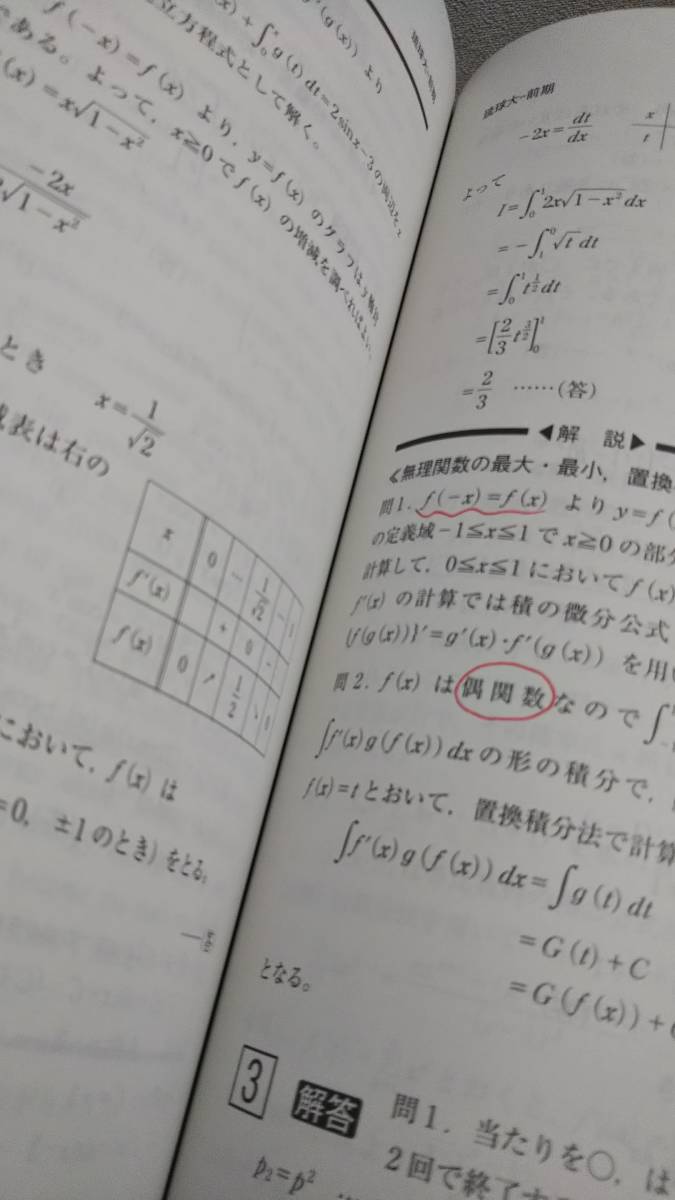 '(g(x)) より
(x)+∫₀ˣg(t)dt=2sinx−3の両辺をx
立方程式として解く。
f(−x)=f(x) より, y=f(x) のグラフはy軸対
である。よって, x≧0でf(x) の増減を調べればよい。
(x)=x√1−x²
−2x
√1−x²
とき x=1/√2
表は右の
x 0 … 1/√2 … 1
f'(x) + 0 −
f(x) 0 ↗ 1/2 ↘
において, f(x) は
=0, ±1のとき) をとる。
琉球大-前期
−2x=dt/dx
x
t
よって
I=∫₀¹2x√1−x²dx
=−∫₁⁰√t dt
=∫₀¹t^{1/2}dt
=[2/3 t^{3/2}]₀¹
=2/3 ……(答)
◀解 説▶
≪無理関数の最大・最小, 置換
問1. f(−x)=f(x) より y=f(
の定義域−1≦x≦1でx≧0の部分
計算して, 0≦x≦1においてf(x)
f'(x) の計算では積の微分公式
{f(g(x))}'=g'(x)・f'(g(x)) を用い
問2. f(x) は偶関数なので∫
∫f'(x)g(f(x))dxの形の積分で,
f(x)=tとおいて, 置換積分法で計算
∫f'(x)g(f(x))dx=∫g(t)dt
=G(t)+C
=G(f(x))+
となる。
3 解答 問1. 当たりを○, は
2回で終了す
p₂=p²